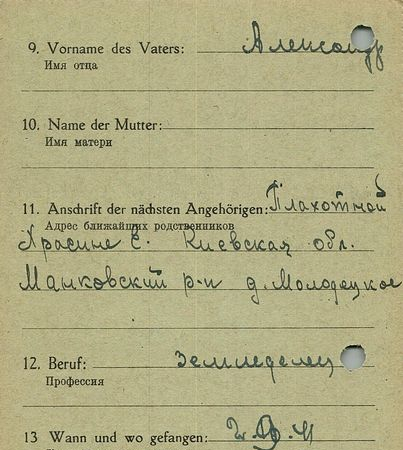 9. Vorname des Vaters: Александр
Имя отца
10. Name der Mutter:
Имя матери
11. Anschrift der nächsten Angehörigen: Плахотной
Адрес ближайших родственников
Е. Киевская обл.
Манковский р-н д. Молодецкое
12. Beruf: Земледелец
Профессия
13 Wann und wo gefangen: